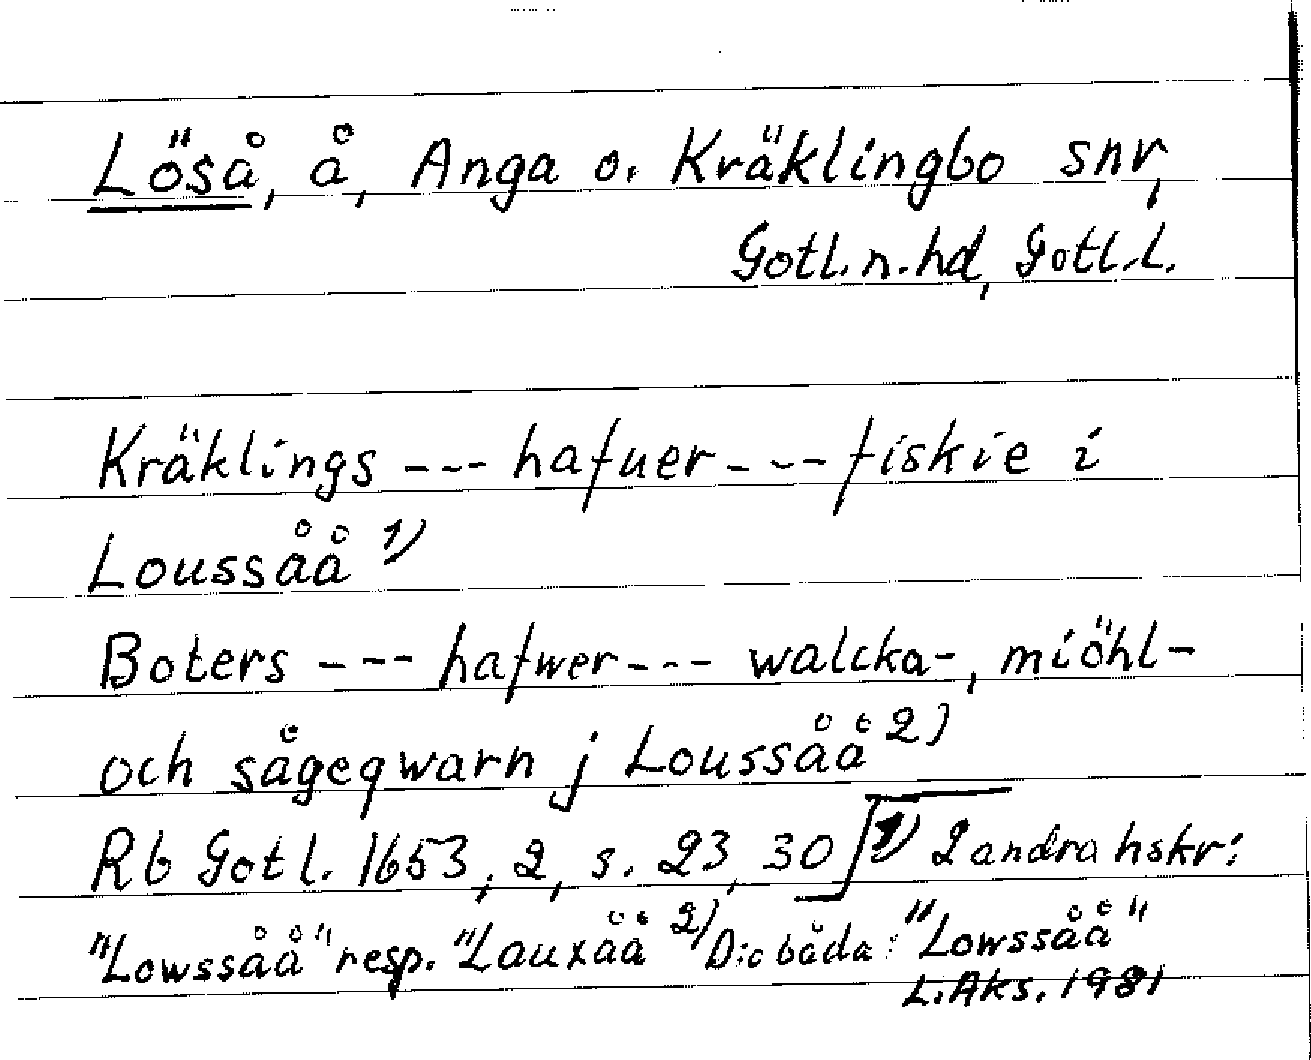 Löså, å, Anga o. Kräklingbo snr,
Gotl.n.hd, Gotl.l.
Kräklings --- hafuer --- fiskie i
Loussåå 1)
Boters --- hafwer --- walcka-, miöhl-
och sågeqwarn j Loussåå 2)
Rb Gotl. 1653, 2, s. 23, 30 1) 2 andra hskr:
"Lowssåå" resp. "Lauxåå 2) D:o båda: "Lowssåå"
L.Aks. 1981